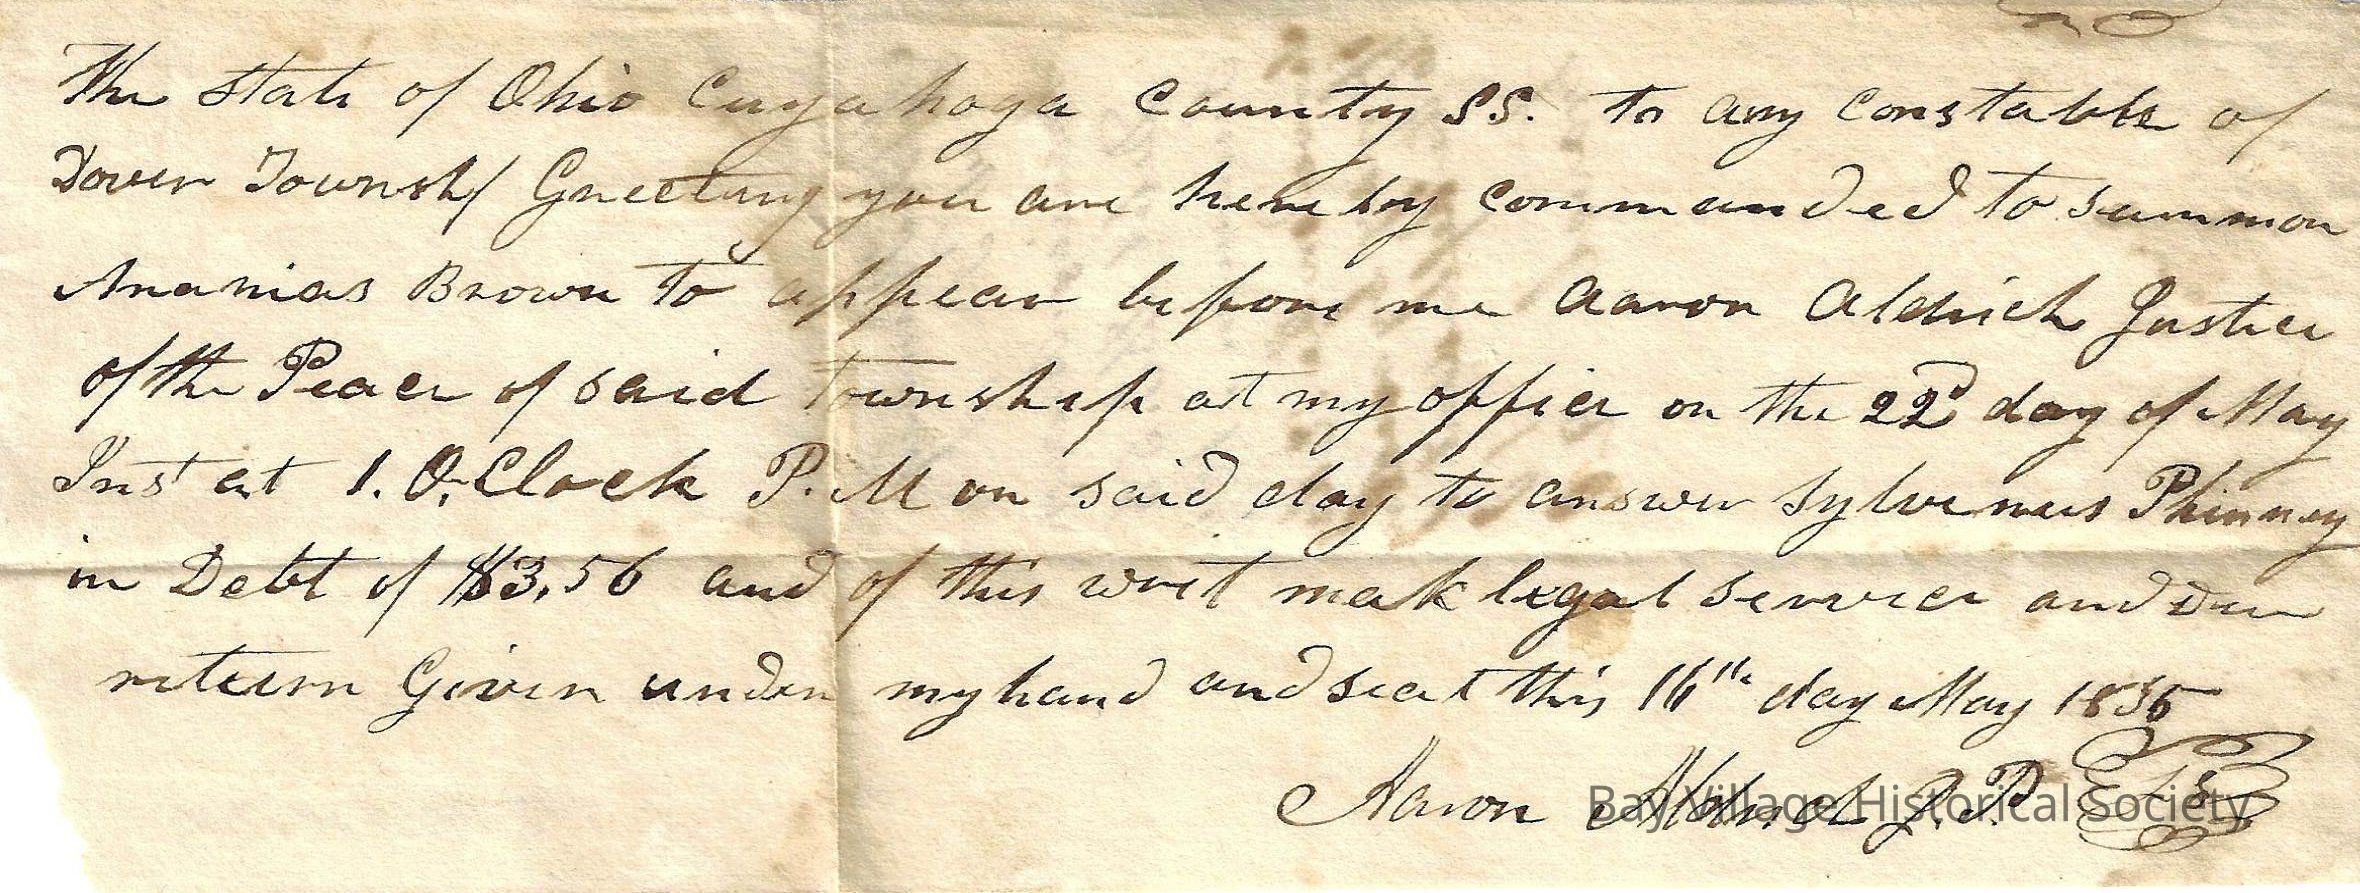 The State of Ohio Cuyahoga County SS. to any Constable of
Dover Townsh/ Greeting you are hereby commanded to summon
Ananias Brown to appear before me Aaron Aldrich Justice
of the Peace of said township at my office on the 22d day of May
Inst at 1. O, Clock P. M on said day to answer Sylvenus Phinney
in Debt of $3,56 and of this writ mak legal service and due
return Given under my hand and seal this 16th day May 1835
Aaron Aldrich J. P. LS
Bay Village Historical Society